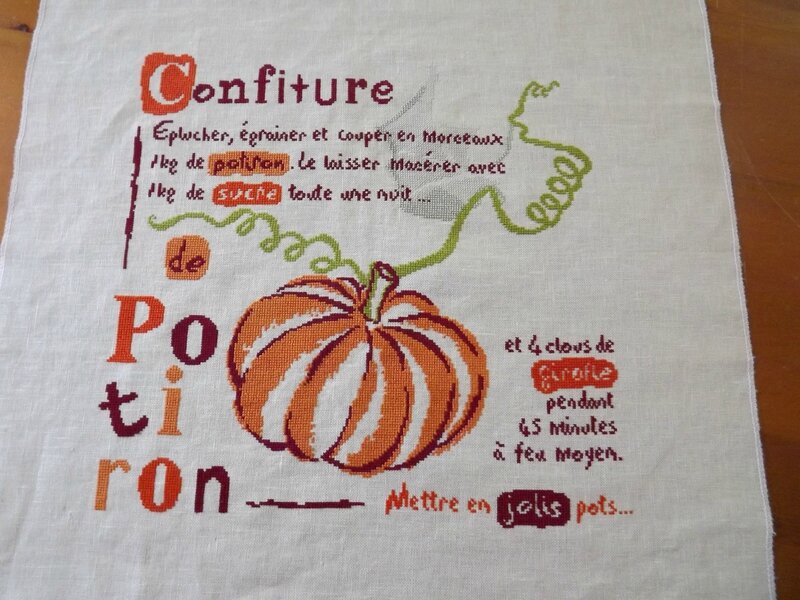 Confiture
Eplucher, égrainer et couper en Morceaux
1kg de potiron. Le laisser Macérer avec
1kg de sucre toute une nuit ...
de
Potiron
et 4 clous de
girofle
pendant
45 minutes
à feu Moyen.
Mettre en jolis pots...